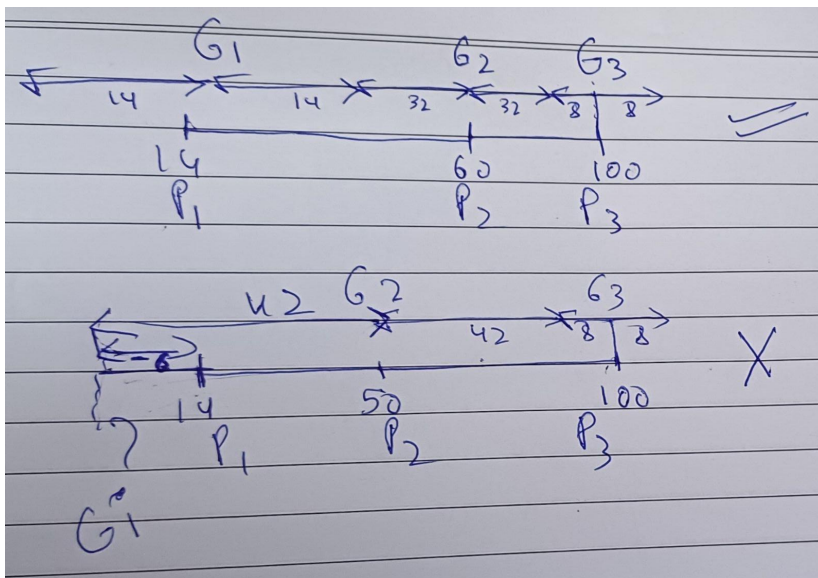 G1 G2 G3
14 14 32 32 8 8
14 60 100
P1 P2 P3
42 G2 G3
42 8 8
-6
14 50 100
? P1 P2 P3
G1